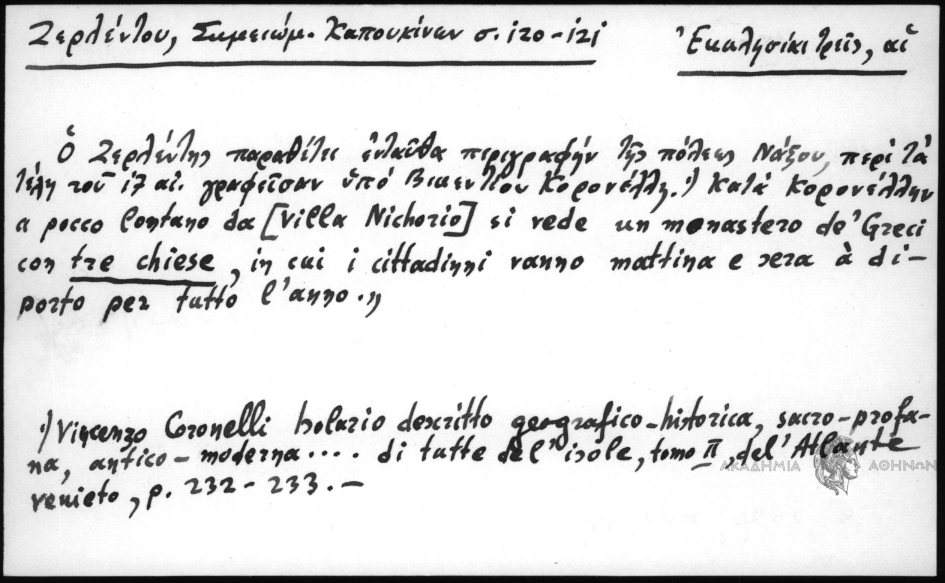 Ζερλέντου, Σημειώμ. Καπουκίνων σ. 120-121
Ἐκκλησίαι τρεῖς, αἱ
Ὁ Ζερλέντης παραθέτει ἐνταῦθα περιγραφήν τῆς πόλεως Νάξου, περί τὰ
τέλη τοῦ 17 αἰ. γραφεῖσαν ὑπό Βικεντίου Κορονέλλη.¹) Κατά Κορονέλλην
a pocco lontano da [villa Nichorio] si vede un monastero de' Greci
con tre chiese, in cui i cittadinni vanno mattina e sera à di-
porto per tutto l'anno.»
¹) Vincenzo Coronelli Isolario descritto geografico-historica, sacro-profa-
na, antico-moderna.... di tutte dell'isole, tomo II, del' Atlante
venieto, p. 232-233.-
ΑΚΑΔΗΜΙΑ ΑΘΗΝΩΝ